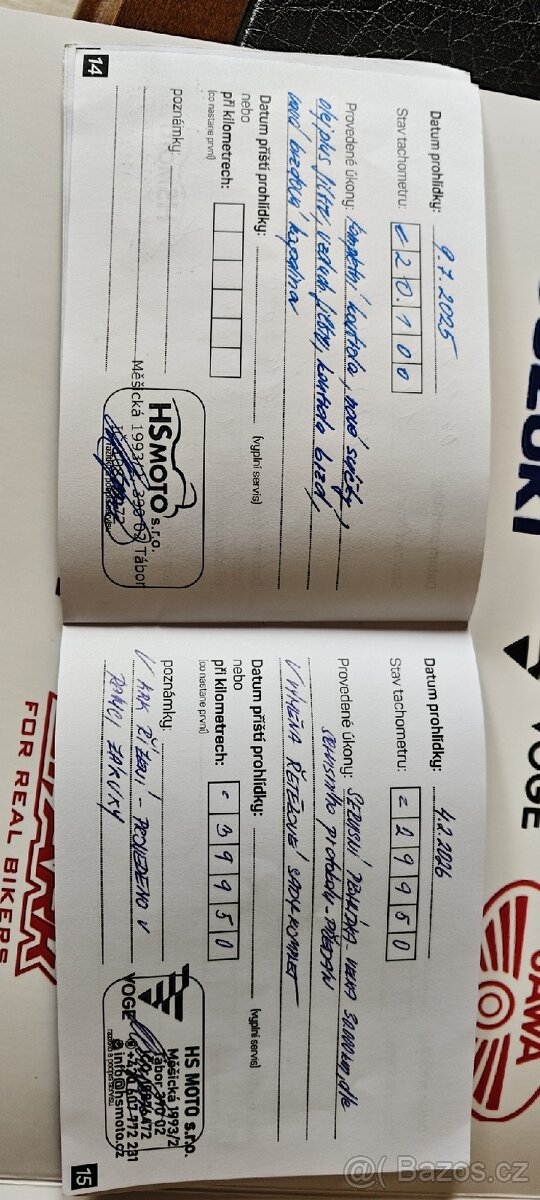 Datum prohlídky: 9.7.2025
Stav tachometru: 20.100
Provedené úkony: kompletní kontrola, nové svíčky,
olej plus filtr, vzduch. filtr, kontrola brzd,
nová brzdová kapalina
(vyplní servis)
Datum příští prohlídky:
nebo
při kilometrech:
(co nastane první)
poznámky:
HS MOTO s.r.o.
Měšická 1993/2, 390 02 Tábor
14
Datum prohlídky: 4.2.2026
Stav tachometru: 29950
Provedené úkony: SERVISNÍ PROHLÍDKA - VELKÁ 30000 km dle
SERVISNÍHO PROTOKOLU - PŘEDÁN
VÝMĚNA ŘETĚZOVÉ SADY KOMPLET
(vyplní servis)
Datum příští prohlídky:
nebo
při kilometrech: 39950
(co nastane první)
poznámky:
V KRK ŘÍZENÍ - PROVEDENO V
RÁMCI ZÁRUKY
VOGE
HS MOTO s.r.o.
Měšická 1993/2
Tábor 390 02
info@hsmoto.cz
15
VOGE
JAWA
FOR REAL BIKERS
Bazos.cz